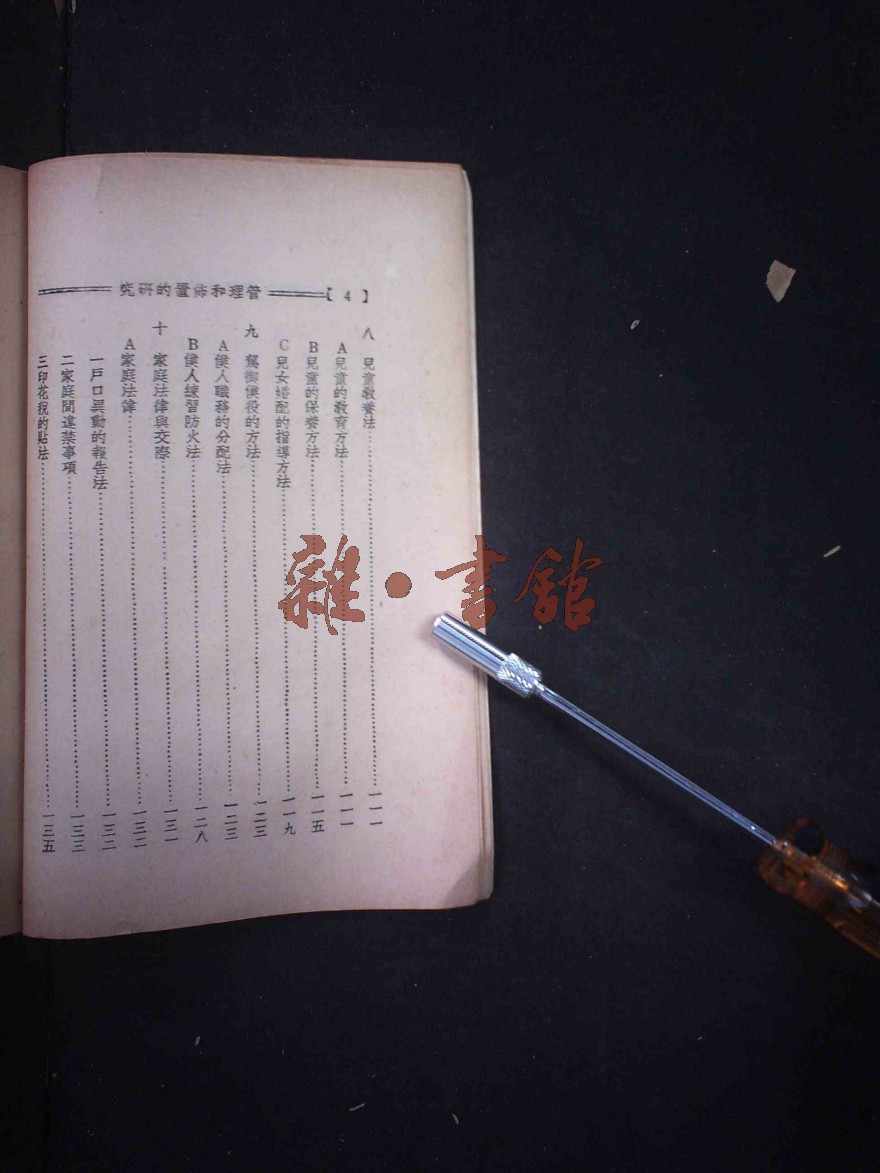 【4】 管理和佈置的研究
八 兒童教養法…………一一一
A兒童的教育方法…………一一一
B兒童的保養方法…………一一五
C兒女婚配的指導方法…………一一九
九 駕御僕役的方法…………一二三
A僕人職務的分配法…………一二三
B僕人練習防火法…………一二八
十 家庭法律與交際…………一三一
A家庭法律…………一三二
一戶口異動的報告法…………一三二
二家庭間違禁事項…………一三三
三印花稅的貼法…………一三五
雜·書館